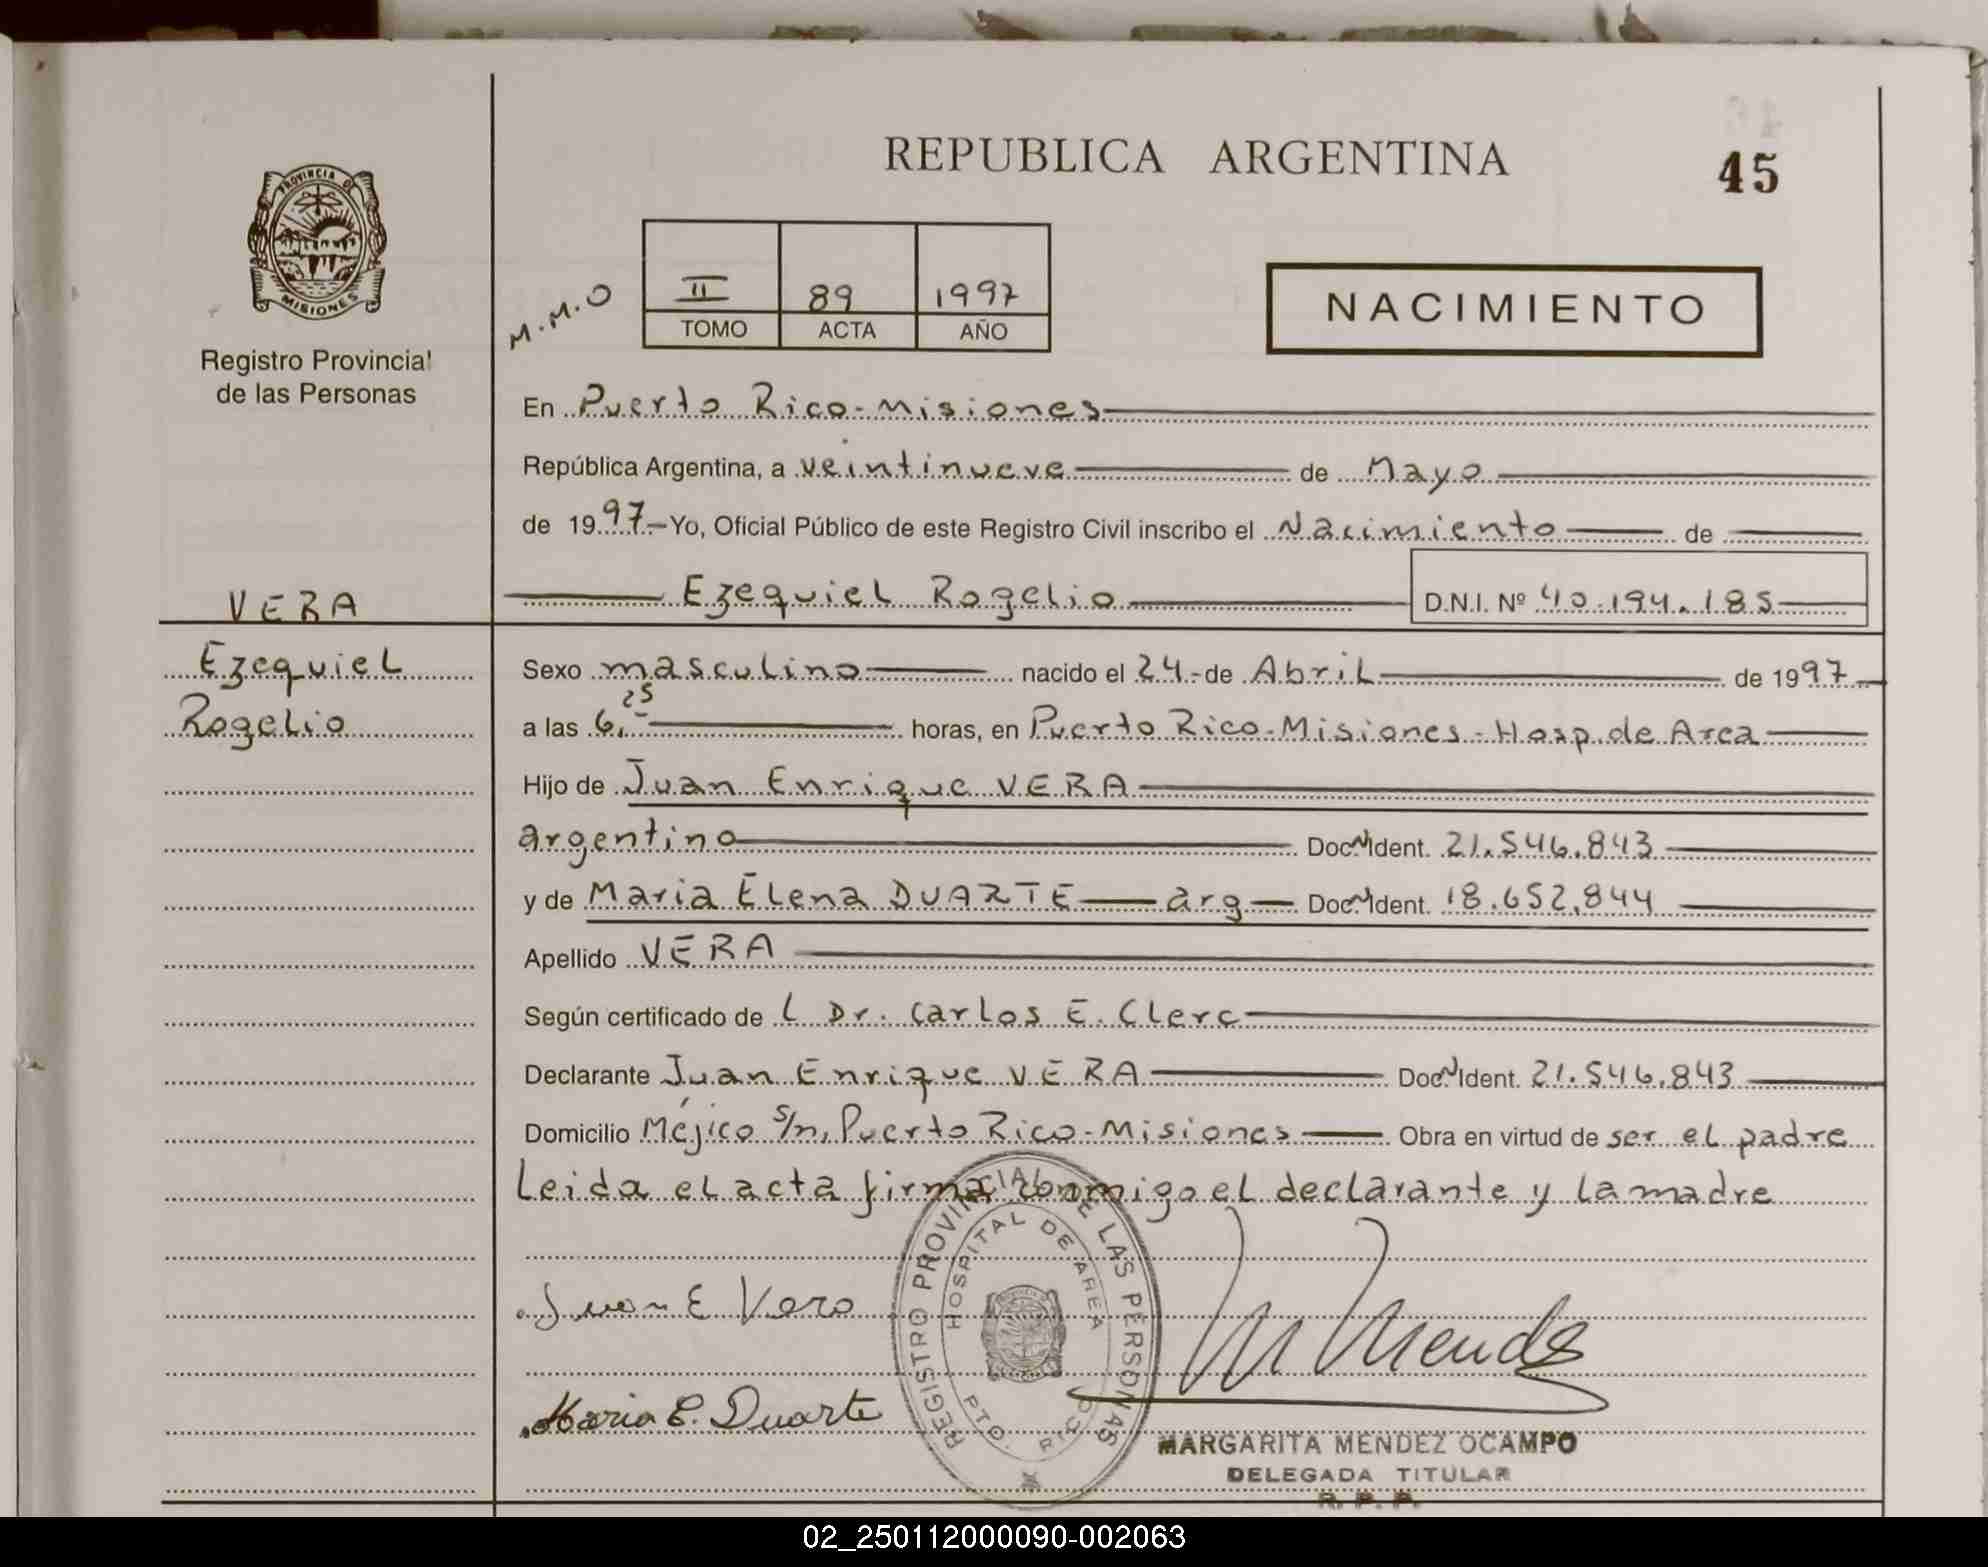 REPUBLICA ARGENTINA
45
PROVINCIA DE
MISIONES
Registro Provincial
de las Personas
M.M.O
II 89 1997
TOMO ACTA AÑO
NACIMIENTO
En Puerto Rico-Misiones
República Argentina, a veintinueve de Mayo
de 1997- Yo, Oficial Público de este Registro Civil inscribo el Nacimiento de
VERA
Ezequiel Rogelio D.N.I. Nº 40.194.185
Ezequiel
Rogelio
Sexo masculino nacido el 24- de Abril de 1997
a las 6,25 horas, en Puerto Rico-Misiones-Hosp.de Area
Hijo de Juan Enrique VERA
argentino Doc. N Ident. 21.546.843
y de Maria Elena DUARTE arg Doc. N Ident. 18.652.844
Apellido VERA
Según certificado de L Dr. Carlos E. Clerc
Declarante Juan Enrique VERA Doc. N Ident. 21.546.843
Domicilio Méjico s/n, Puerto Rico-Misiones Obra en virtud de ser el padre
Leida el acta firma conmigo el declarante y la madre
REGISTRO PROVINCIAL DE LAS PERSONAS
HOSPITAL DE AREA
PTO. RICO
Juan E Vera
M Mendez
Maria E. Duarte
MARGARITA MENDEZ OCAMPO
DELEGADA TITULAR
R. P. P.
02_250112000090-002063